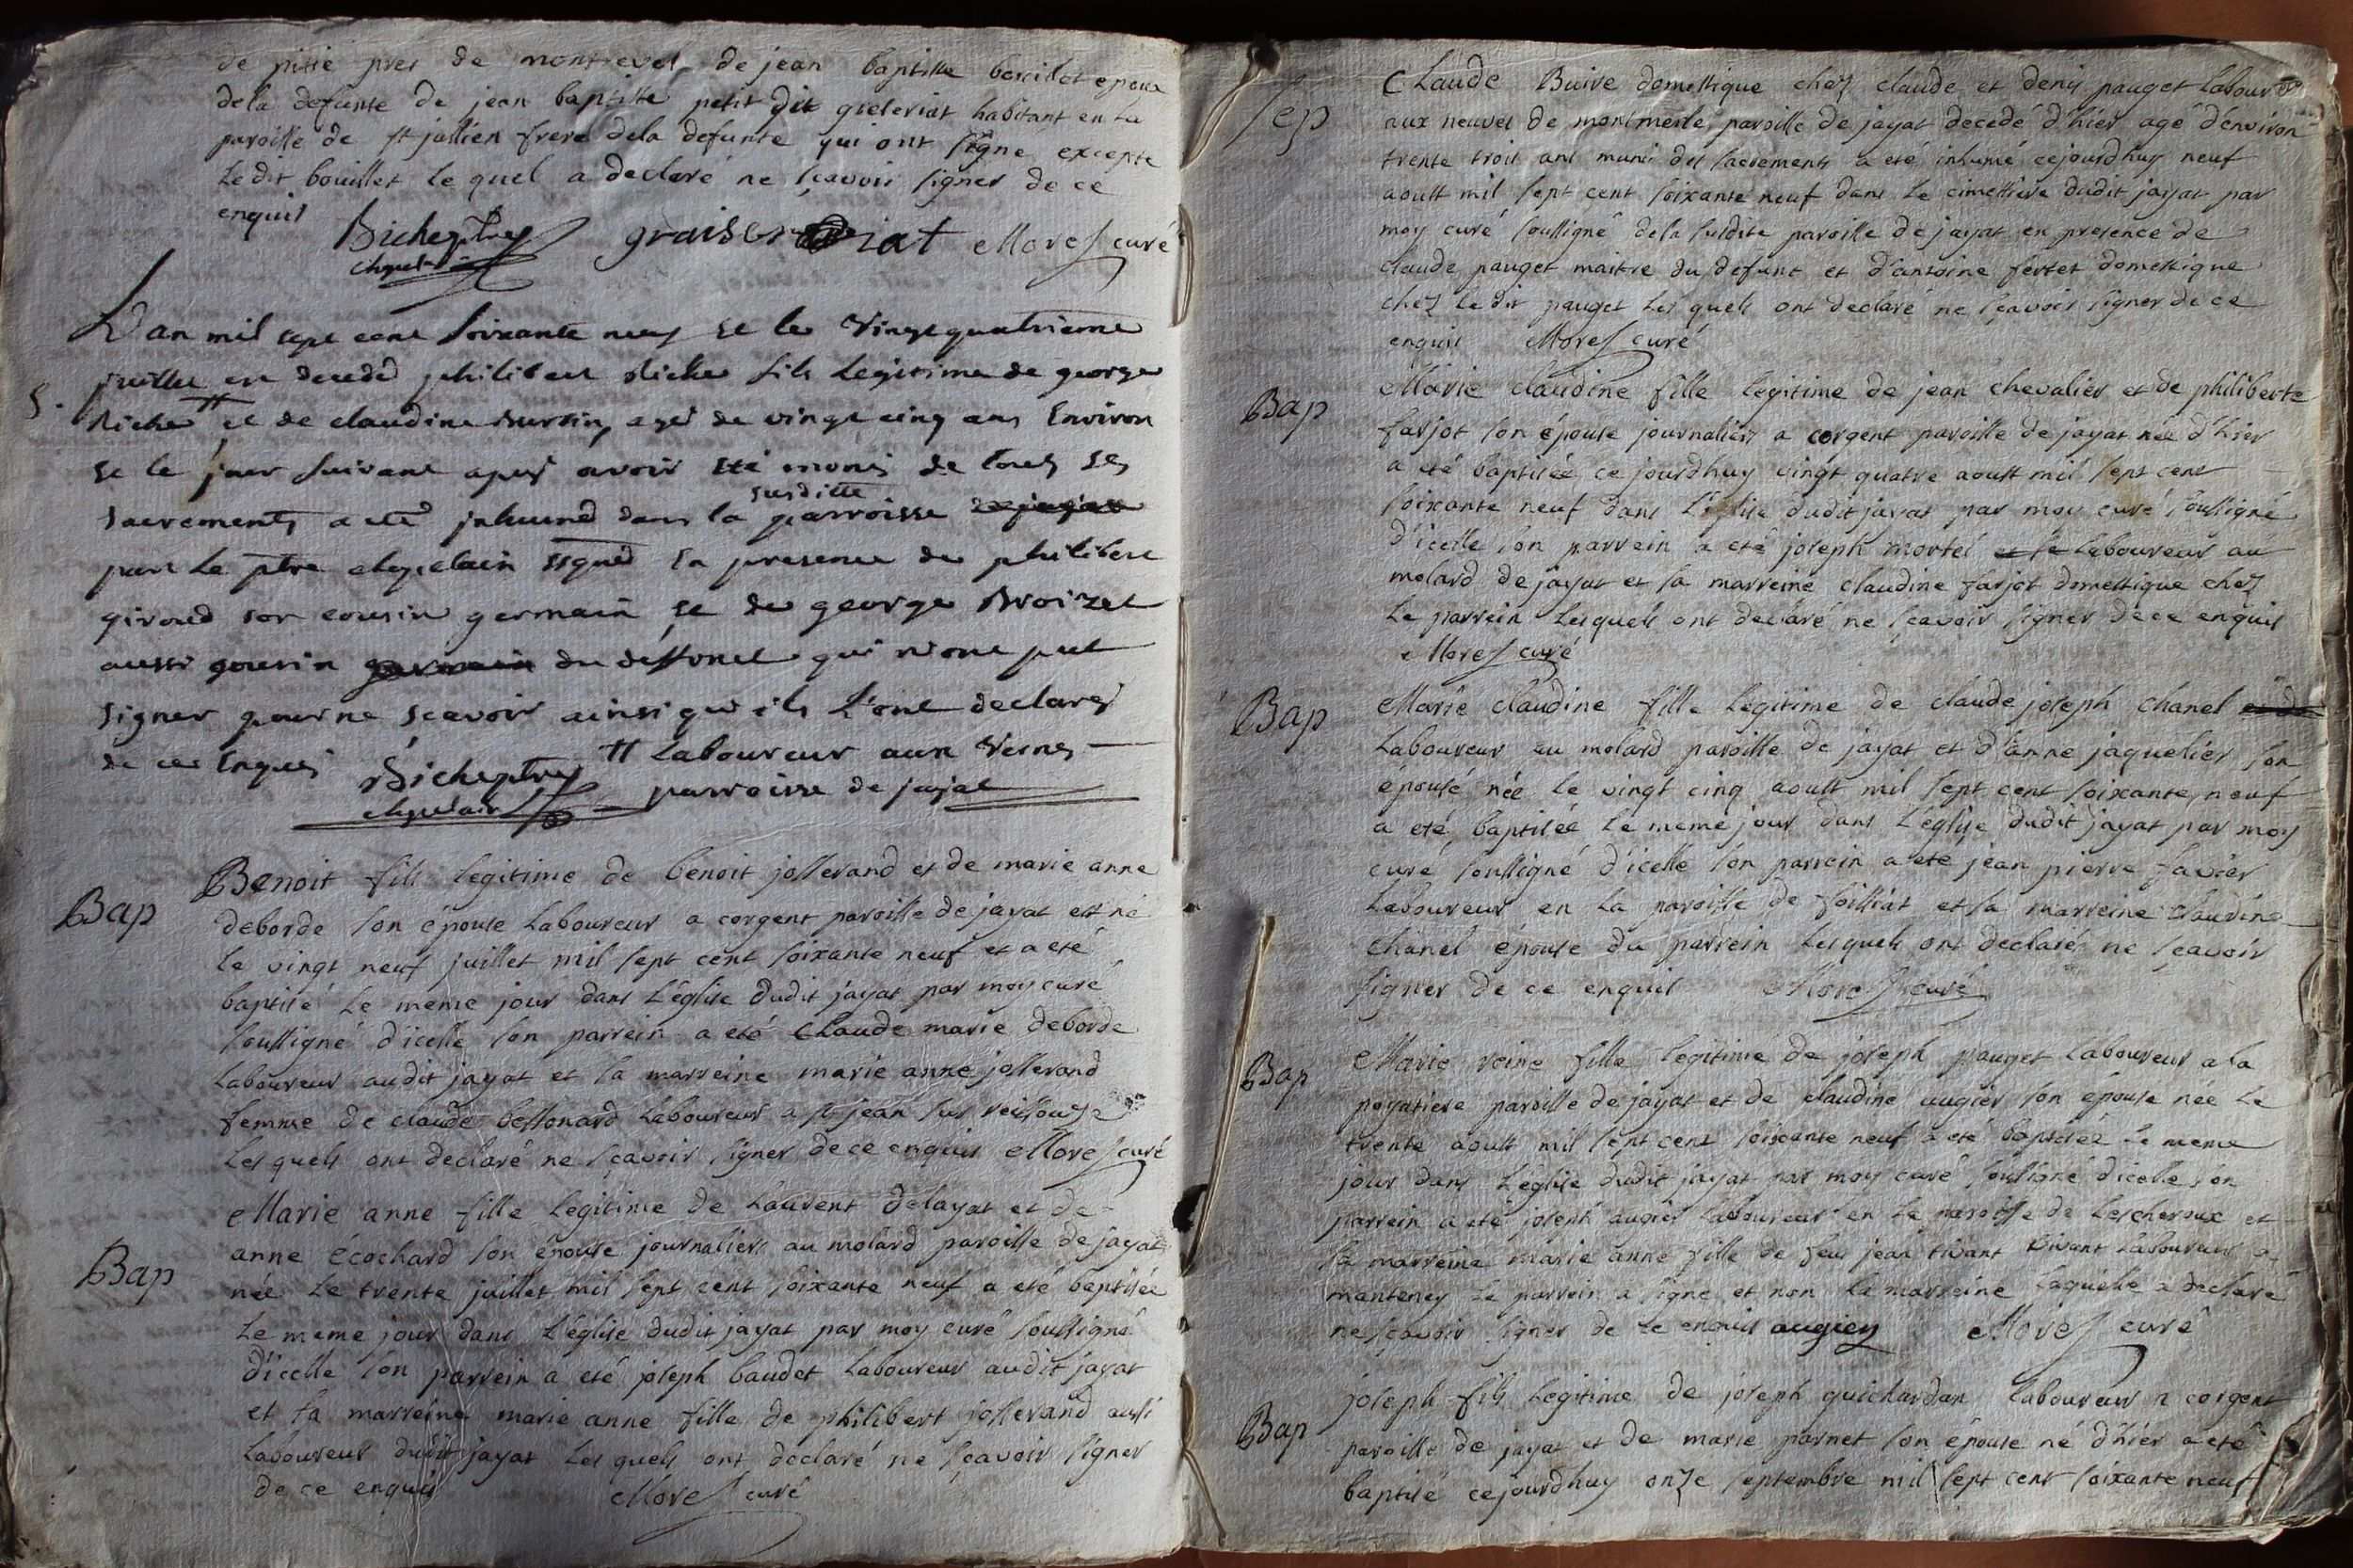 de pisié pres de montrevel, de jean baptiste epoux
dela defunte de jean baptiste petit dit greleriat habitant en la
paroisse de st jullien frere dela defunte qui ont signe excepte
Le dit bouillet le quel a declaré ne sçavoir signer de ce
enquis
Moref curé
L'an mil sept cent soixante neuf et le vingt quatrieme
juillet est decedé philibert fils legitime de george
S.
et de claudine agé de vingt cinq ans Environ
et le jour suivant apres avoir eté muni de tous ses
susditte
sacrements a eté inhumé dans la parroisse de jayat
par le ptre chapelain signé En presence de philibert
giroud son cousin germain et de george Broizet
aussi cousin germain du deffunct qui n'ont put
signer pour ne sçavoir ainsi qu'ils L'ont declarez
de ce Enquis
# Laboureur aux Vernes
parroisse de jayat
Bap
Benoit fils legitime de benoit josserand et de marie anne
deborde son épouse Laboureur a corgent paroisse de jayat est né
Le vingt neuf juillet mil sept cent soixante neuf et a eté
baptisé Le meme jour dans L'église dudit jayat par moy curé
soussigné d'icelle son parrein a eté claude marie deborde
Laboureur audit jayat et sa marreine marie anne josserand
femme de claude bessonard Laboureur a st jean sur reissouze
Les quels ont declaré ne sçavoir signer de ce enquis Moref curé
Bap
Marie anne fille legitime de Laurent delayat et de
anne écochard son épouse journaliers au molard paroisse de jayat
née Le trente juillet mil sept cent soixante neuf a eté baptisée
Le meme jour dans L'église dudit jayat par moy curé soussigné
d'icelle son parrein a eté joseph baudet Laboureur audit jayat
et sa marreine marie anne fille de philibert josserand aussi
Laboureur dudit jayat Les quels ont declaré ne sçavoir signer
de ce enquis Moref curé
Sep
Claude Buire domestique chez claude et denis pauget Labour
aux neuves de montmerle paroisse de jayat decedé d'hier agé d'environ
trente trois ans muni des sacrements a eté inhumé cejourdhuy neuf
aoust mil sept cent soixante neuf dans le cimettiere dudit jayat par
moy curé soussigné dela susdite paroisse de jayat en presence de
claude pauget maitre du defunt et d'antoine fertet domestique
chez le dit pauget Les quels ont declaré ne sçavoir signer de ce
enquis Moref curé
Bap
Marie claudine fille legitime de jean chevalier et de philiberte
farjot son épouse journaliers a corgent paroisse de jayat née d'hier
a eté baptisée ce jourdhuy vingt quatre aoust mil sept cent
soixante neuf dans L'église dudit jayat par moy curé soussigné
d'icelle son parrein a eté joseph mortel et le Laboureur au
molard de jayat et sa marreine claudine farjot domestique chez
Le parrein Lesquels ont declaré ne sçavoir signer de ce enquis
Moref curé
Bap
Marie claudine fille legitime de claude joseph chanel et de
Laboureur au molard paroisse de jayat et d'anne jaquelier son
épouse née le vingt cinq aoust mil sept cent soixante neuf
a eté baptisée Le meme jour dans L'église dudit jayat par moy
curé soussigné d'icelle son parrein a eté jean pierre favier
Laboureur en La paroisse de foissiat et sa marreine claudine
chanel épouse du parrein Lesquels ont declaré ne sçavoir
signer de ce enquis Moref curé
Bap
Marie reine fille legitime de joseph pauget Laboureur a la
poyatiere paroisse de jayat et de claudine augier son épouse née Le
trente aoust mil sept cent soixante neuf a eté baptisée Le meme
jour dans L'église dudit jayat par moy curé soussigné d'icelle son
parrein a eté joseph augier Laboureur en La paroisse de Lescheroux et
sa marreine marie anne fille de feu jean tivant vivant Laboureur a
manteney Le parrein a signe et non La marreine Laquelle a declaré
ne sçavoir signer de ce enquis augier Moref curé
Bap
joseph fils legitime de joseph guichardan Laboureur a corgent
paroisse de jayat et de marie parnet son épouse né d'hier a eté
baptisé cejourdhuy onze septembre mil sept cent soixante neuf